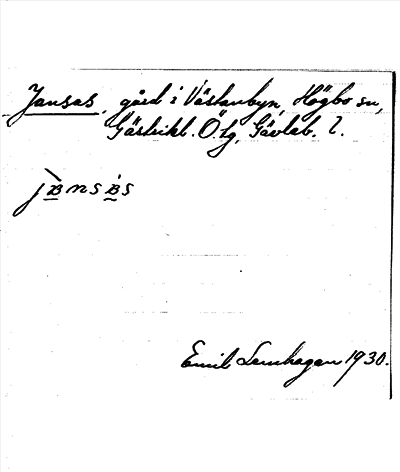 Jansas, gård i Västanbyn, Högbo sn,
Gästrikl. Ö. tg, Gävleb. l.
Emil Lemhagen 1930.